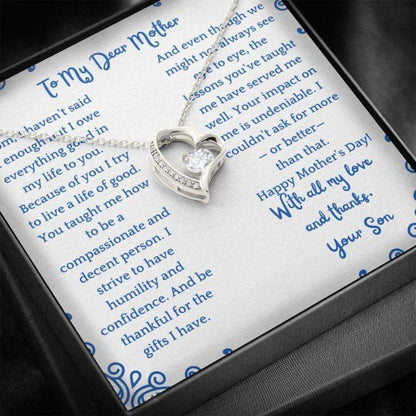 To My Dear Mother
I haven't said
enough that I owe
everything good in
my life to you.
Because of you I try
to live a life of good.
You taught me how
to be a
compassionate and
decent person. I
strive to have
humility and
confidence. And be
thankful for the
gifts I have.
And even though we
might not always see
to eye, the
lessons you've taught
me have served me
well. Your impact on
me is undeniable. I
couldn't ask for more
— or better—
than that.
Happy Mother's Day!
With all my love
and thanks.
Your Son